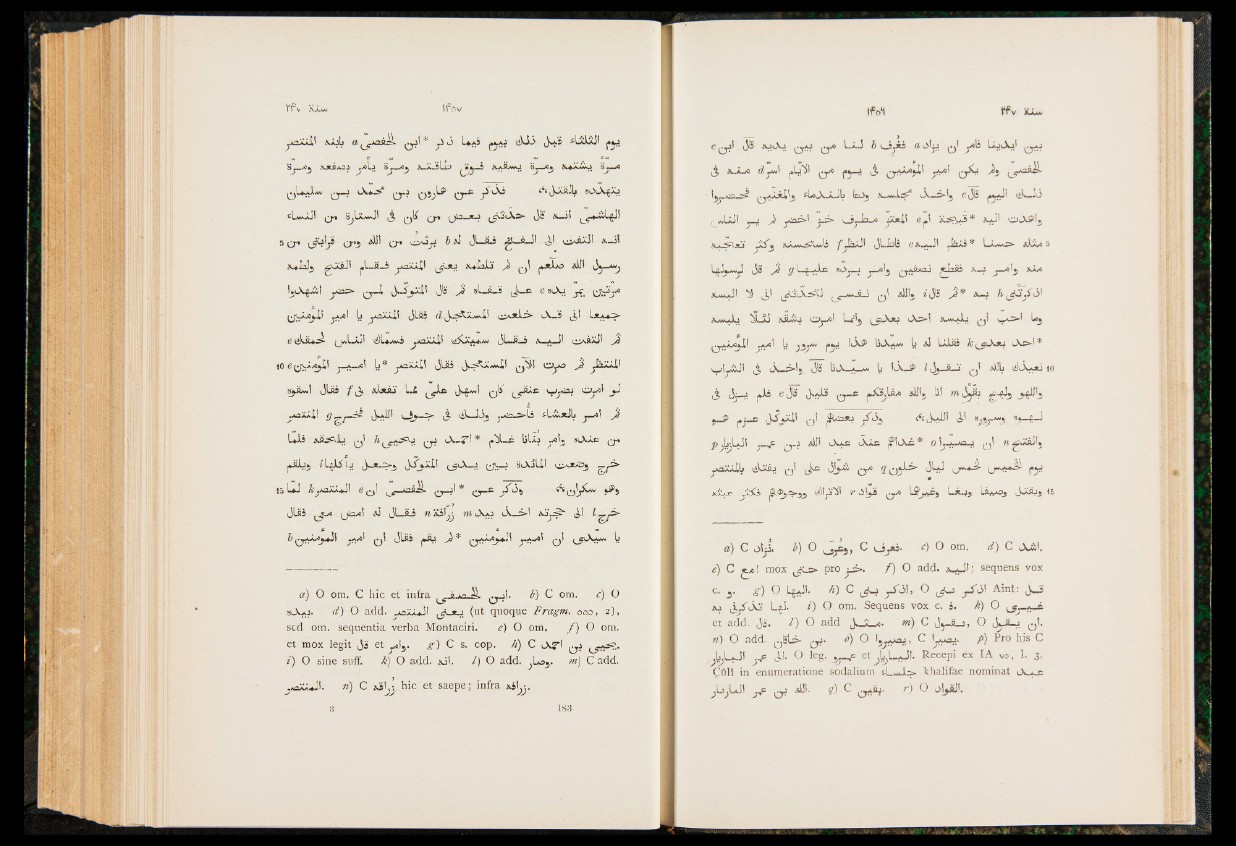 سنة ٢٤٧
١٤٥٦
بين ايدينا فامر ان يزاد a فغُرف b لنا من بين يديه قال ابن c
الحفصى ولم يكن امير المؤمنين فى يوم من الايّام اسرّ d منه فى
ذلك اليوم قال c واخذ مجلسه ودعا بالندماء والمغنّين فحضروا
واهدت اليه *قبيحة امّ e المعتزّ مطرف خزّ اخضر لم ير الناس
5 مثله حسنا *فنظر اليه c فاطال النظر f فاستحسنه وكثر تعجّبه
منه وامر به فقطع نصفين وامر بردّه عليها g ثم قال لرسولها
اذكرتنى h به *ثم قال i والله ان نفسى لتحدّثنى انى لا البسه
وما احبّ ان يلبسه احد بعدى وانما امرت بشقّه لئلّا يلبسه
*احد بعدى k فقلنا له يا سيّدنا هذا يوم سرور يا امير المؤمنين
10 نعيذك بالله ان تقول l هذا يا سيّدنا قال واخذ فى الشراب
واللهو ولهج بقول m انا والله مفارقكم عن قليل قال c فلم يزل فى
لهوه وسروره الى الليل ۞ وذكر بعضهم ان المتوكّل عزم هو
والفتح n ان يصيرا o *غداءهم عند عبد الله بن عمر البازيار p
يوم الخميس لخمس ليال خلون q من شوّال على ان يفتك بالمنتصر
15 ويقتل وصيفا وبغا وغيرهما من قوّاد r الاتراك ووجوههم فكثر عبثه
a) C تزاد. b) O وغرف, C فغرف. c) O om. d) C اشد.
e) C امع mox حتى pro خز. f) O add. اليه; sequens vox
c. و. g) O اليها. h) C اذكر بى, O اذكر بى Ainî: قد
انها تذكرنى به. i) O om. Sequens vox c. ف. k) O غيرى
et add. قال. l) O add مثل. m) C بقول, O ان يقول.
n) O add. بن خاقان. o) O يصيروا, C يصيرا. p) Pro his C
الى عمر البازيار. O leg. عمرو et البازيار. Recepi ex IA ٧٥, l. 3.
Çûlî in enumeratione sodalium جلساء khalifae nominat عبد
الله بن عمر البازيار. q) C بقين. r) O القواد.
سنة ٢٤٧
١٤٥٧
يوم الثلثاء قبل ذلك بيوم فيما ذكر *ابن الحفصى a بابنه المنتصر
مرّة يشتمه ومرّة يسقيه فوق طاقته ومرّة يأمر بصفعه ومرّة
يتهدّده بالقتل ۞ فذكر عن هارون بن محمّد بن سليمان
الهاشمىّ انه قال حدّثنى بعض من كان فى الستارة من النساء
5 انه التفت الى الفتح فقال له b برئت من الله ومن قرابتى من
رسول الله صلعم ان لم تلطمه يعنى المنتصر فقام الفتح ولطمه
مرّتين يمرّ يده c على قفاه ثم قال المتوكّل لمن حضر اشهدوا
جميعا انى قد خلعت المستعجل d فقال المنتصر يا امير المؤمنين
ثم التفت اليه فقال سمّيتك المنتصر فسمّاك الناس لحمقك e
10 المنتظر ثم صرت الآن المستعجل فقال المنتصر *يا امير المؤمنين e
لو امرت بضرب عنقى كان اسهل علىّ مما تفعله بى f فقال اسقوه
ثم امر بالعشاء فأحضر وذلك فى جوف الليل فخرج g المنتصر
من عنده وامر بنانا غلام *احمد بن يحيى h ان يلحقه فلما
خرج وضعت المائدة بين يدى المتوكّل وجعل يأكلها i ويلقم
وهو سكران ۞ وذكر عن *ابن الحفصى ان e المنتصر k لما 15
خرج l الى حجرته اخذ بيد m زرافة n فقال له امض معى فقال
يا سيّدى ان امير المؤمنين *لم يقم فقال ان امير المؤمنين b
a) O om. C hic et infra ابن الحفصفى. b) C om. c) O
بيده. d) O add. يعنى المنتصر (ut quoque Fragm. 555, 2),
sed om. sequentia verba Montaciri. e) O om. f) O om.
et mox legit قل et وامر. g) C s. cop. h) C احمد بن يحيى.
i) O sine suff. k) O add. انه. l) O add. وصار. m) C add.
المنتصر. n) C زرافه hic et saepe; infra زرافه.
3
183